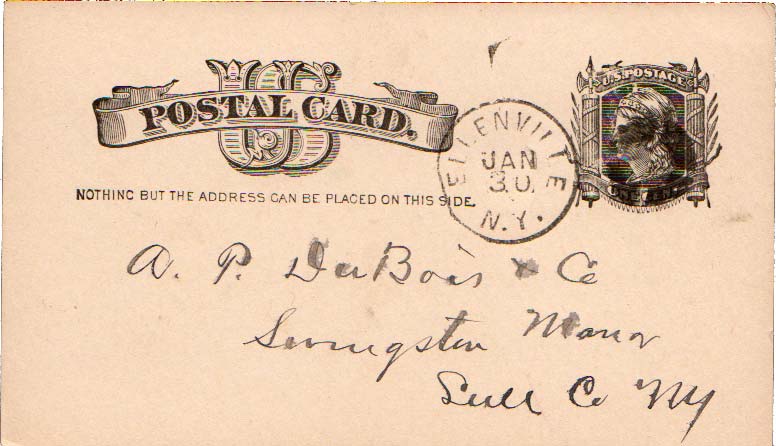 U.S. POSTAGE
US
POSTAL CARD.
ELLENVILLE
JAN
30
N.Y.
ONE CENT
NOTHING BUT THE ADDRESS CAN BE PLACED ON THIS SIDE.
A. P. DuBois & Co
Livingston Manor
Sull Co NY